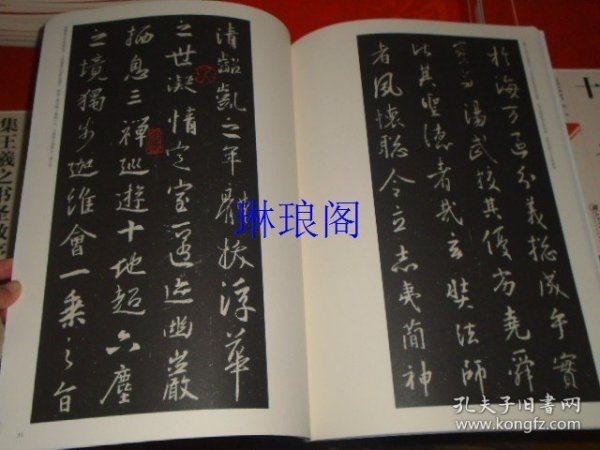 於海万區分義揔成乎實
豈與湯武挍其優劣堯舜
比其聖德者哉玄奘法師
者夙懷聡令立志夷簡神
清齠齓之年體拔浮華
之世凝情定室匿迹幽巖
栖息三禪巡遊十地超六塵
之境獨步迦維會一乘之旨
集王羲之书圣教序
十
琳琅阁
孔夫子旧书网
www.kongfz.com